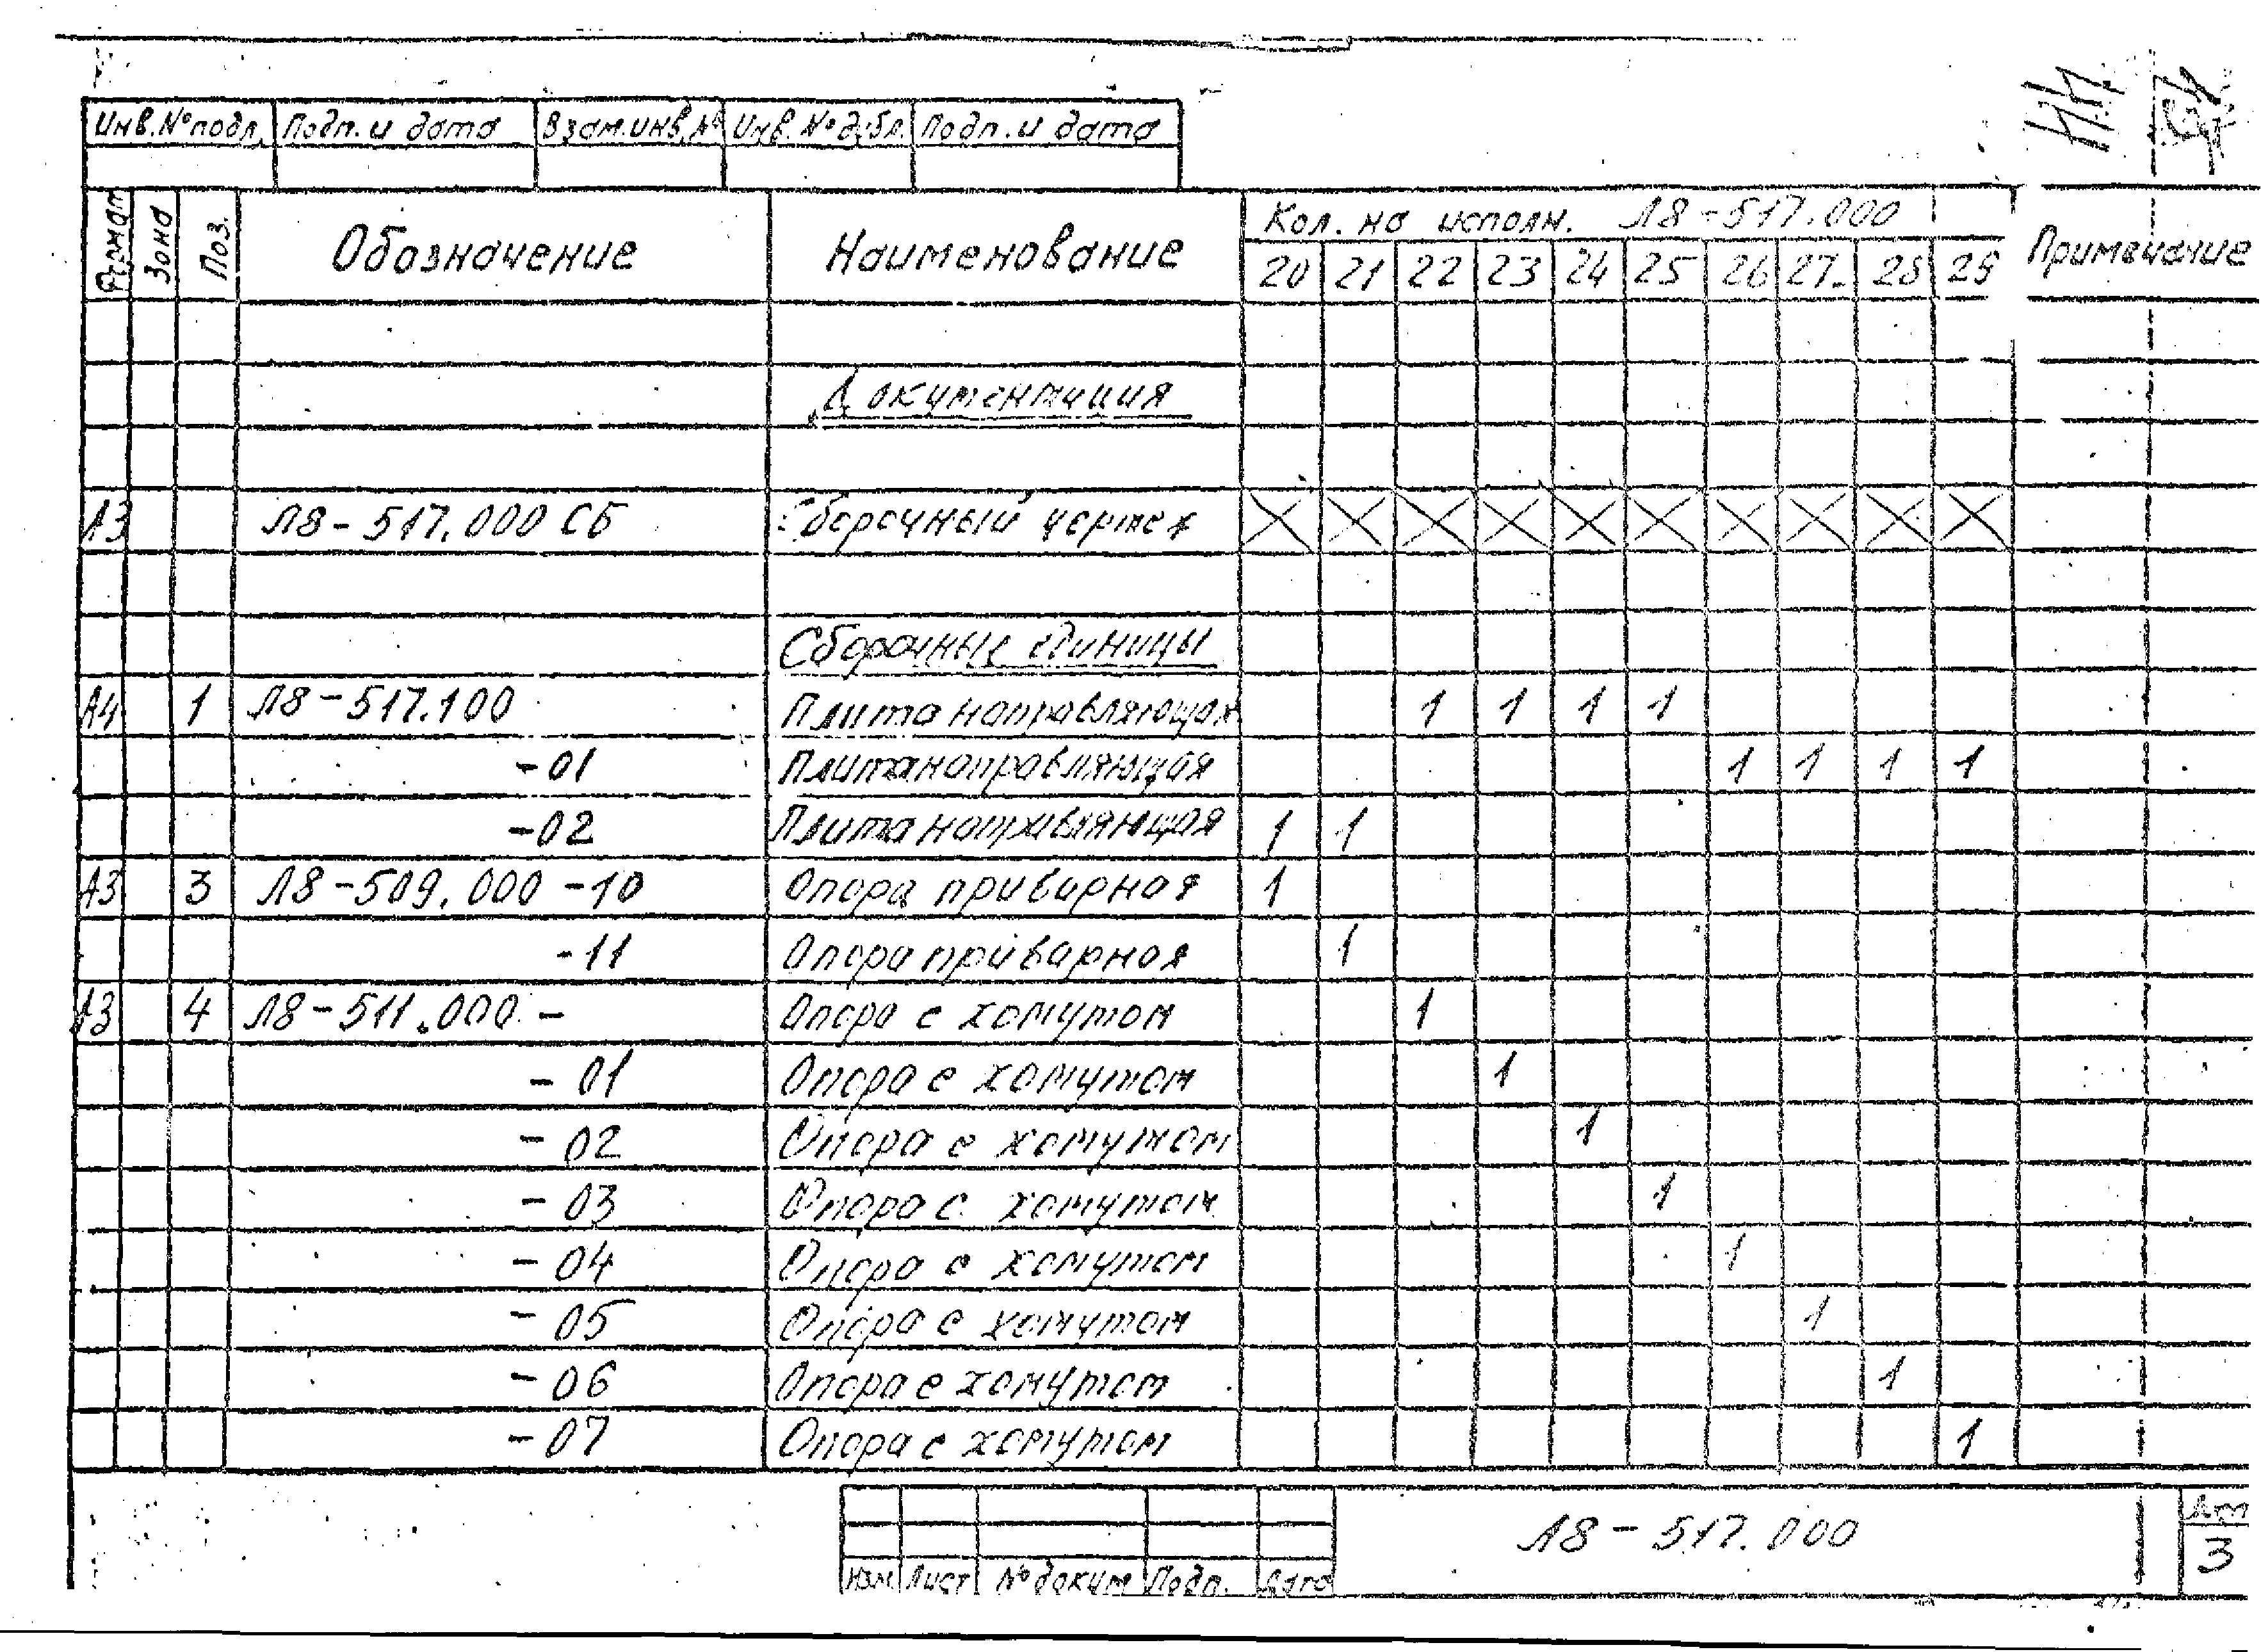 Инв.№подл. Подп. и дата Взам.инв.№ Инв.№дубл. Подп. и дата
Формат Зона Поз. Обозначение Наименование Кол. на исполн. Л8-517.000 Примечание
20 21 22 23 24 25 26 27 28 29
Документация
А3 Л8-517.000 СБ Сборочный чертеж
Сборочные единицы
А4 1 Л8-517.100 Плита направляющая 1 1 1 1
-01 Плита направляющая 1 1 1 1
-02 Плита направляющая 1 1
А3 3 Л8-509.000 -10 Опора приварная 1
-11 Опора приварная 1
А3 4 Л8-511.000 - Опора с хомутом 1
- 01 Опора с хомутом 1
- 02 Опора с хомутом 1
- 03 Опора с хомутом 1
- 04 Опора с хомутом 1
- 05 Опора с хомутом 1
- 06 Опора с хомутом 1
- 07 Опора с хомутом 1
Л8-517.000
Изм Лист № докум Подп. Дата
Лист
3